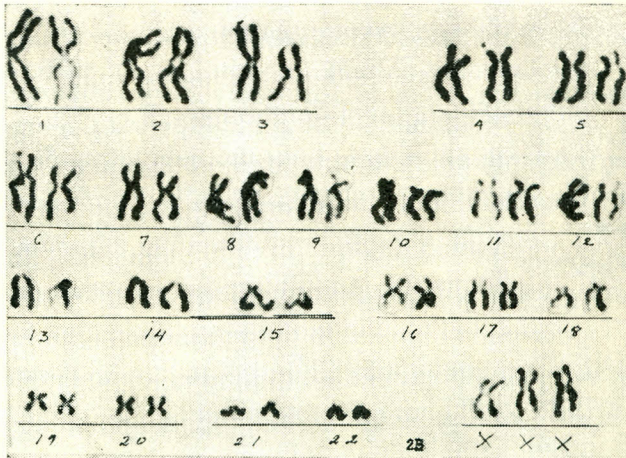 1 2 3 4 5
6 7 8 9 10 11 12
13 14 15 16 17 18
19 20 21 22 23 X X X